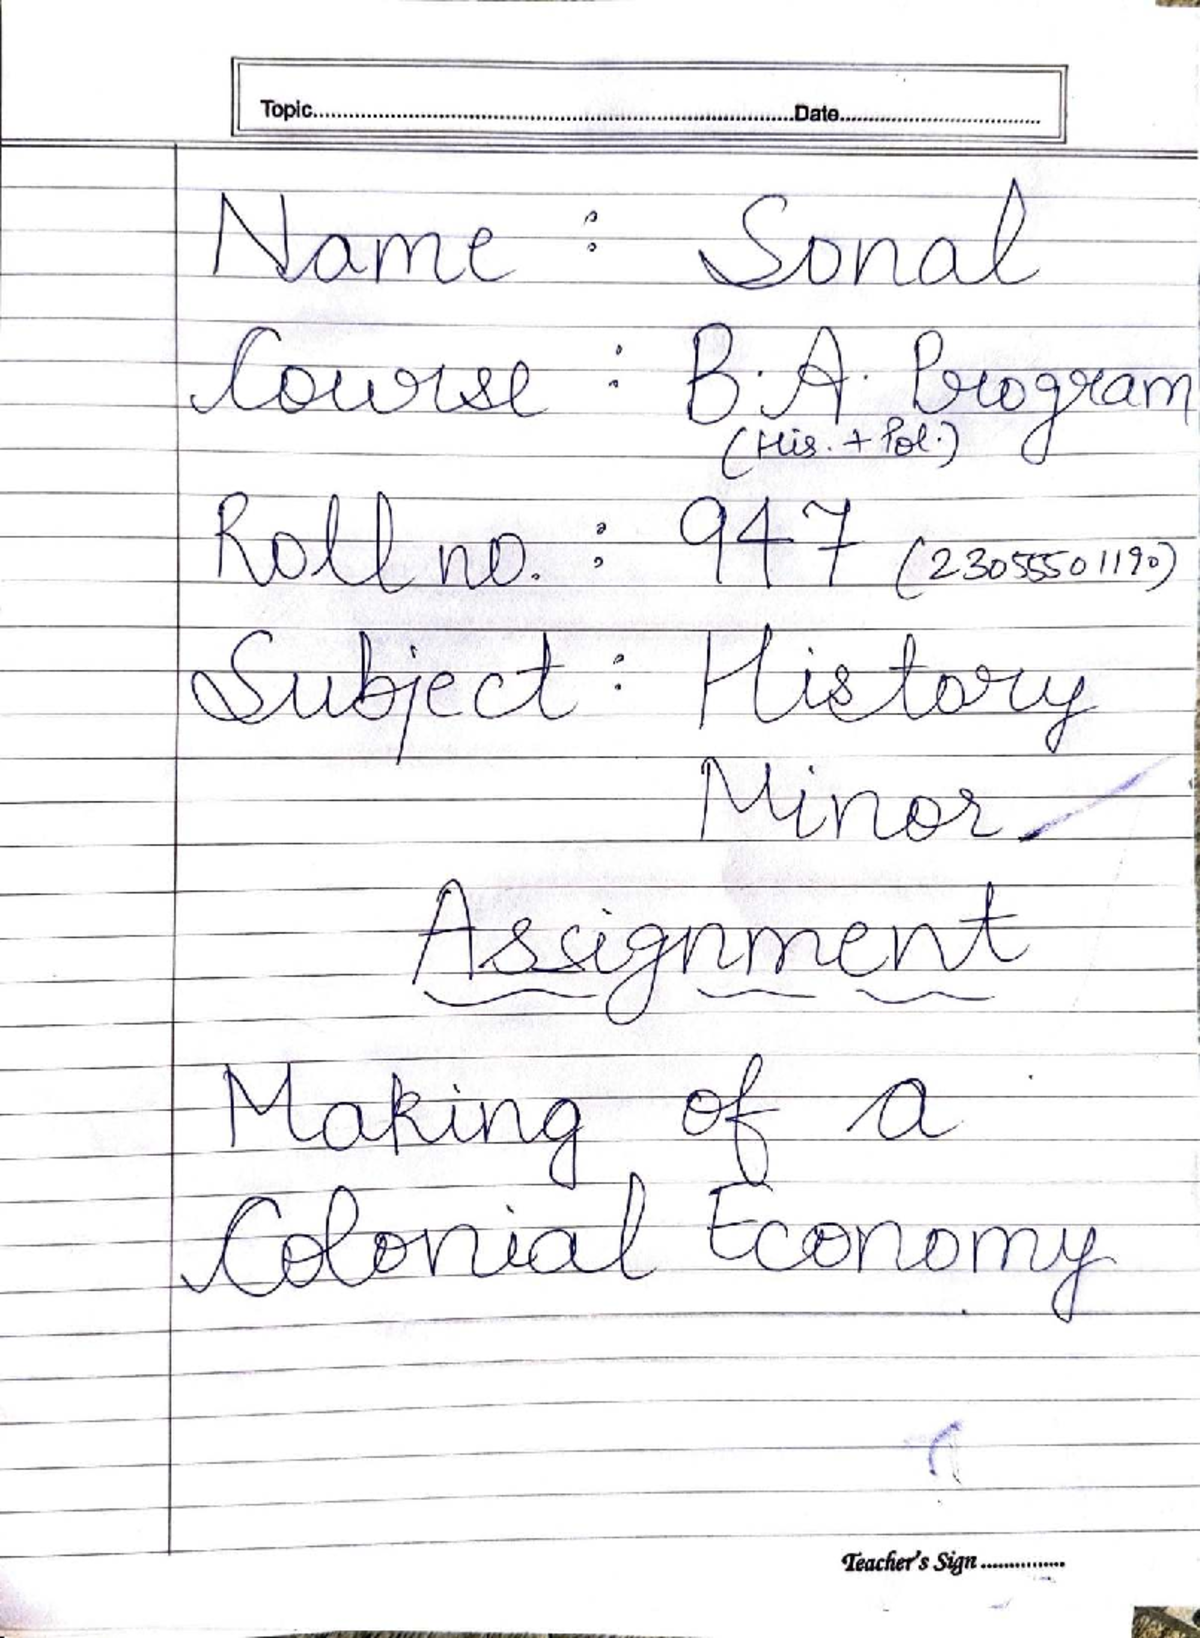 Topic..............................Date..............................
Name : Sonal
Course : B.A. Program
(His. + Pol.)
Roll no. : 947 (23055501190)
Subject : History
Minor
Assignment
Making of a
Colonial Economy
Teacher's Sign ...............